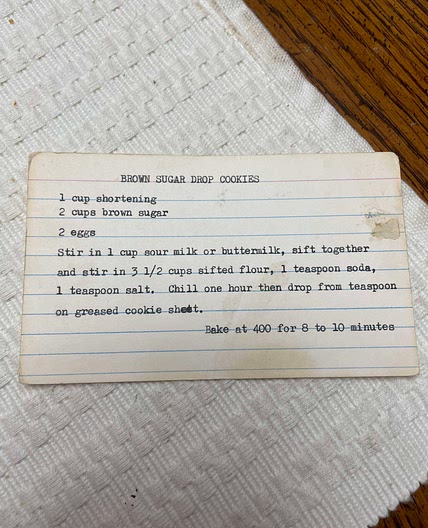 BROWN SUGAR DROP COOKIES
1 cup shortening
2 cups brown sugar
2 eggs
Stir in 1 cup sour milk or buttermilk, sift together
and stir in 3 1/2 cups sifted flour, 1 teaspoon soda,
1 teaspoon salt. Chill one hour then drop from teaspoon
on greased cookie sheet.
Bake at 400 for 8 to 10 minutes